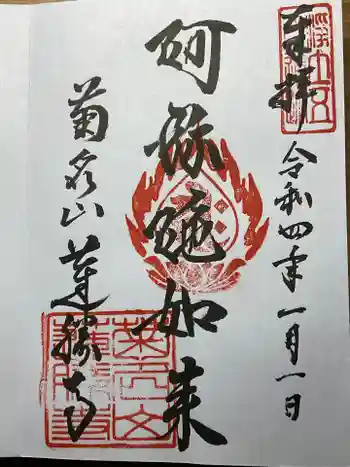 奉拝
令和四年一月一日
阿弥陀如来
菊名山
蓮勝寺